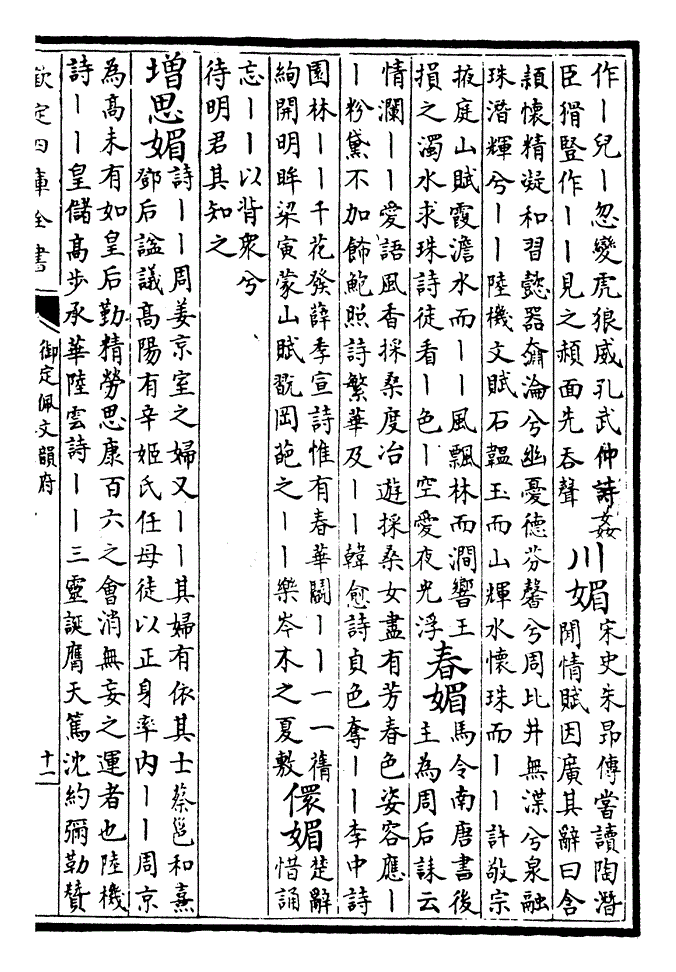 作丨兒丨忽變虎狼威孔武仲詩姦
臣猾豎作丨丨見之頳面先吞聲
川媚
宋史朱昂傳嘗讀陶潛
閒情賦因廣其辭曰含
頴懷精凝和習懿器奫淪兮幽憂德芬馨兮周比井無渫兮泉融
珠潛輝兮丨丨陸機文賦石韞玉而山輝水懷珠而丨丨許敬宗
掖庭山賦霞澹水而丨丨風飄林而澗響王
損之濁水求珠詩徒看丨色丨空愛夜光浮
春媚
馬令南唐書後
主為周后誄云
情瀾丨丨愛語風香採桑度冶遊採桑女盡有芳春色姿容應丨
丨粉黛不加飾鮑照詩繁華及丨丨韓愈詩貞色奪丨丨李中詩
園林丨丨千花發薛季宣詩惟有春華鬭丨丨一一
絢開明眸梁寅蒙山賦翫岡葩之丨丨樂岑木之夏敷
儇媚
楚辭
惜誦
忘丨丨以背衆兮
待明君其知之
增思媚
詩丨丨周姜京室之婦又丨丨其婦有依其士蔡邕和熹
鄧后諡議高陽有辛姬氏任母徒以正身率內丨丨周京
為高未有如皇后勤精勞思康百六之會消無妄之運者也陸機
詩丨丨皇儲高步承華陸雲詩丨丨三靈誕膺天篤沈約彌勒贊
欽定四庫全書
御定佩文韻府
十一